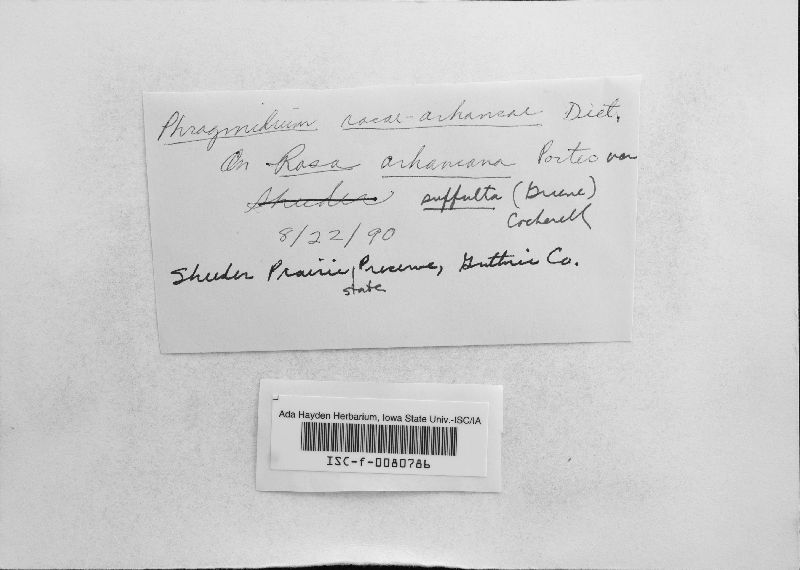 Phragmidium rosae-arkansae Diet.
On Rosa arkansana Porter var
Sheeder suffulta (Greene)
Cockerell
8/22/90
Sheeder Prairie Preserve, Guthrie Co.
state
Ada Hayden Herbarium, Iowa State Univ.-ISC/IA
ISC-f-0080786